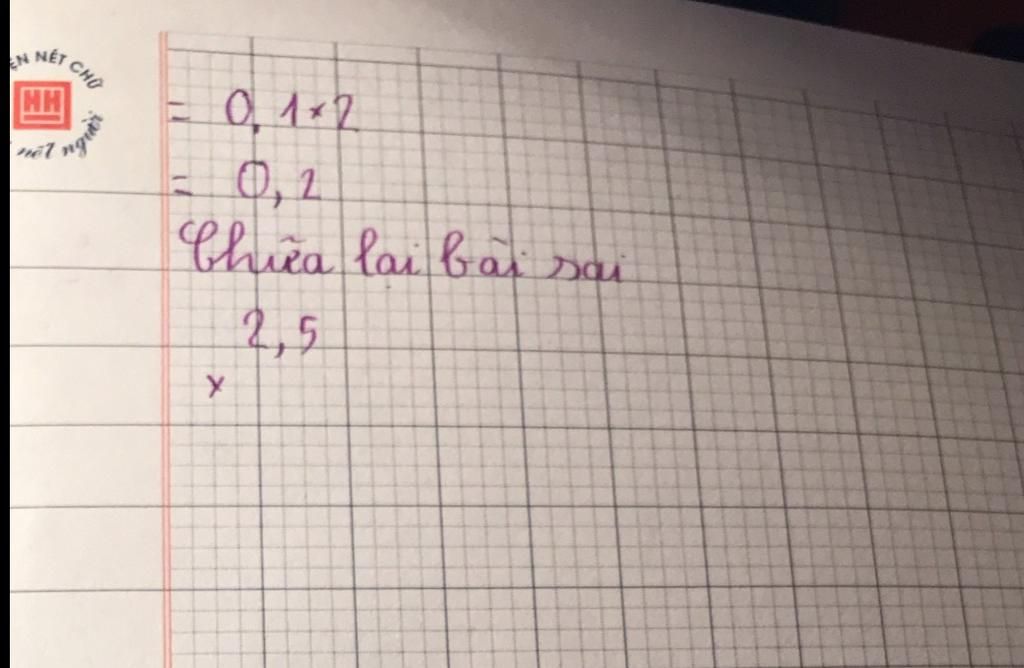 ỆN NÉT CHỮ
HH
nết người
= 0,1×2
= 0,2
Chữa lại bài sai
2,5
×